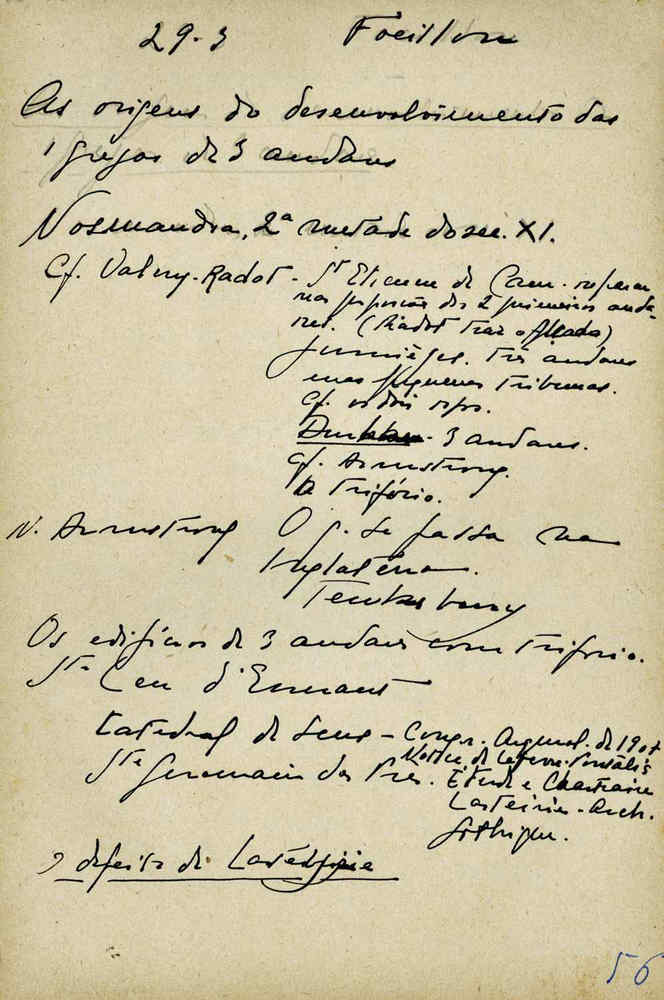 29.3 Focillon
As origens do desenvolvimento das
igrejas de 3 andares
Normandia, 2ª metade do sec. XI.
Cf. Valery-Radot - St Etienne de Caen.
nas proporções dos 2 primeiros anda-
res. (Radot traz o
Jumièges. três andares
mas pequenas tribunas.
Cf.
Durham - 3 andares.
Cf. Armstrong.
trifório.
V. Armstrong O q. se passa na
Inglaterra.
Tewksbury
Os edifícios de 3 andares com triforio.
St Leu d'Esserent
Catedral de Sens - Congr. Arqueol. de 1907
Notice de Lefèvre-Pontalis
St Germain des Prés. Étude e Chartraire
Lasteirie - Arch.
Gothique.
defeito de
56